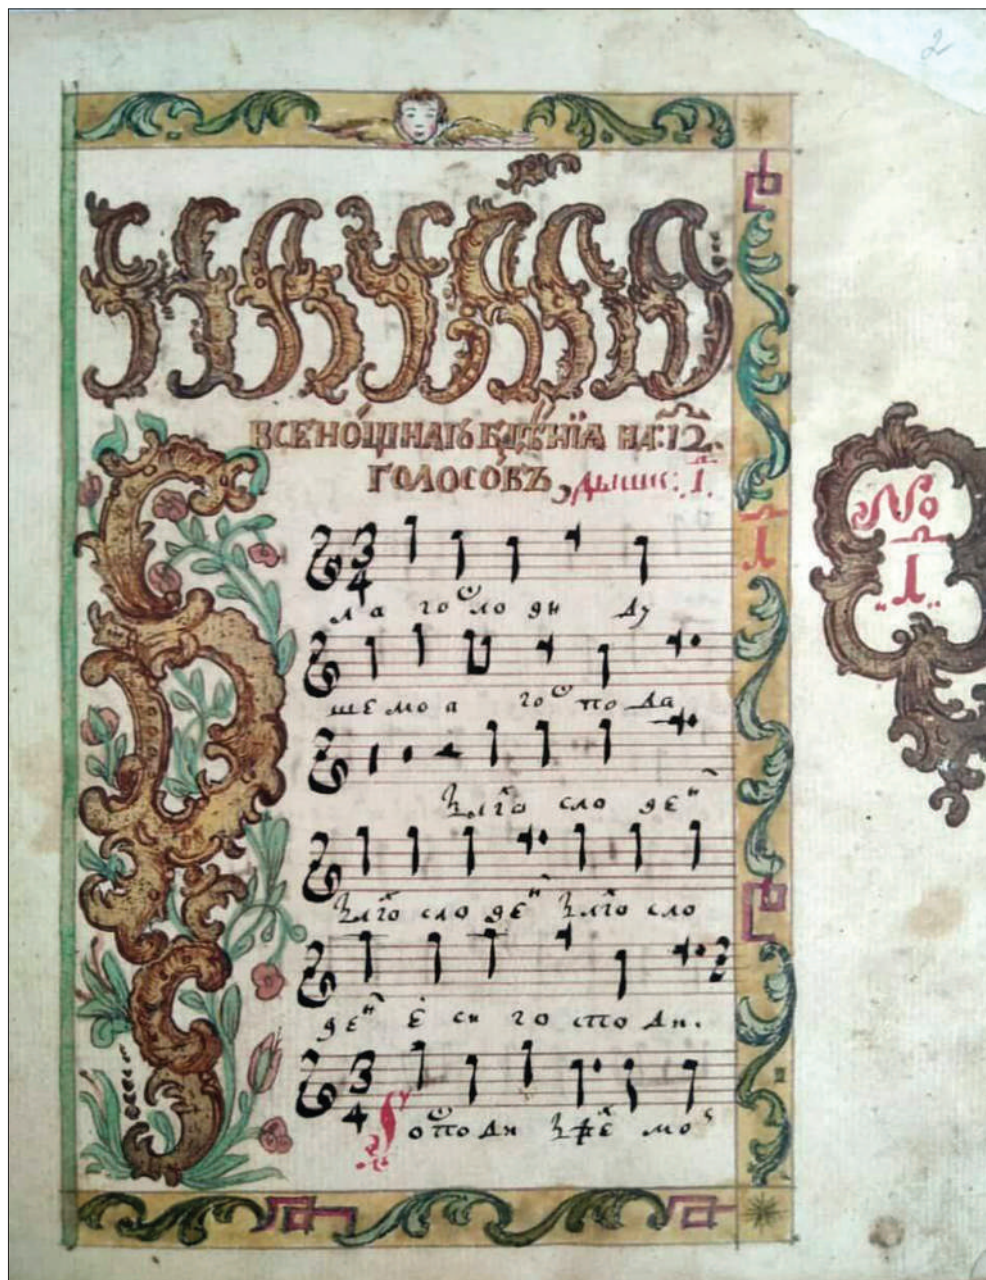 2
НАЧАЛО
ВСЕНО́ЩНАГѠ БДѢ́НІѦ НА 12
ГОЛОСОВЪ, дышк: 1.
3 4
ла го сло ви ду
1
ше мо я го спо да
No
1
Блго сло ве
Блго сло ве Блго сло
ве е си го спо ди.
3 4
о спо ди Бже мо